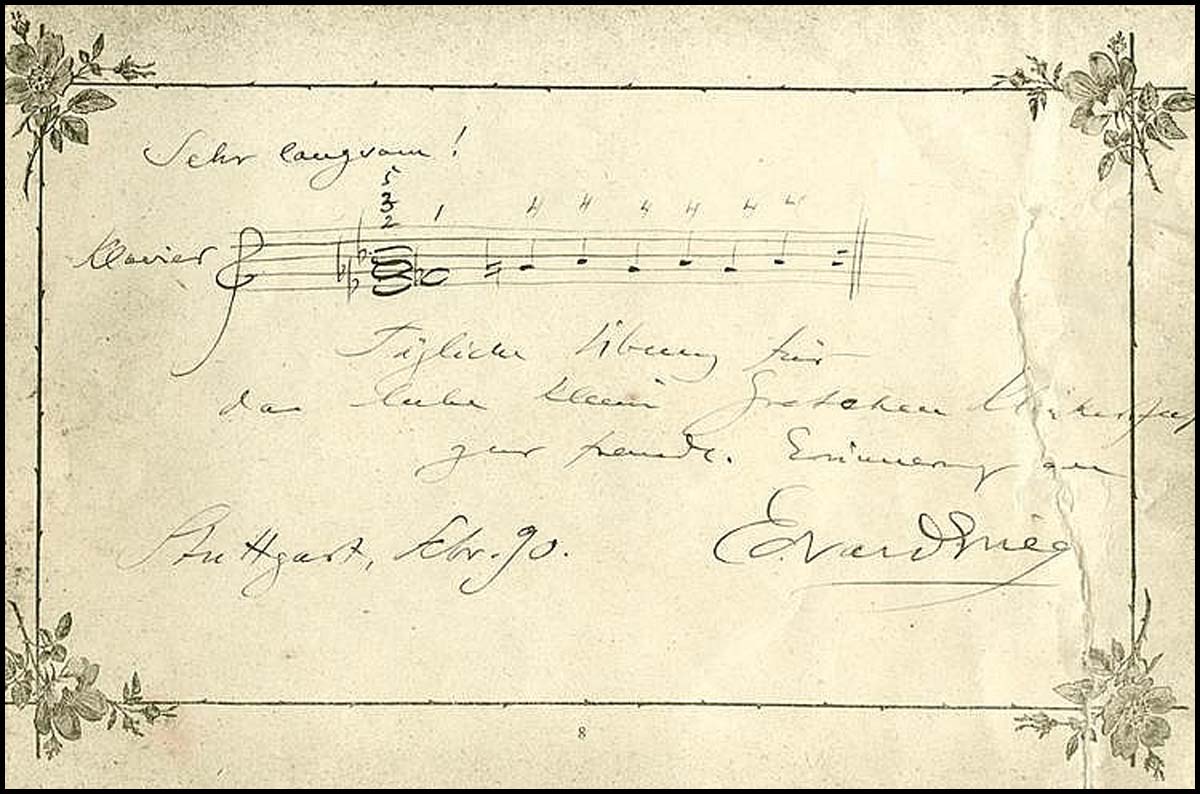 Sehr langsam!
5
3
2 1 4 4 4 4 4 4
Klavier
Tägliche Übung für
das liebe kleine Gretchen
zur freundl. Erinnerung an
Stuttgart, Febr. 90. Edvard Grieg
8